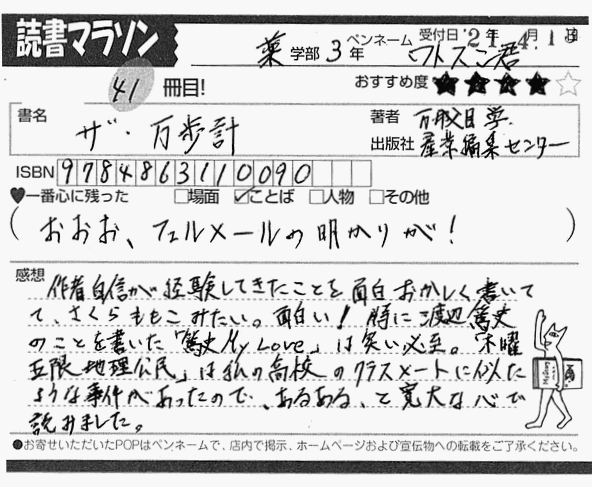 読書マラソン
受付日 '21. 4月 1日
薬 学部 3 年 ペンネーム ワトスン君
41 冊目! おすすめ度 ★★★★☆
書名 ザ・万歩計
著者 万城目 学
出版社 産業編集センター
ISBN 9784863110090
♥一番心に残った □場面 ☑ことば □人物 □その他
( おおお、フェルメールの明かりが! )
感想
作者自信が経験してきたことを面白おかしく書いて
て、さくらももこみたい。面白い! 特に渡辺篤史
のことを書いた「篤史My Love」は笑い必至。「木曜
五限 地理公民」は私の高校のクラスメートに似た
ような事件があったので、あるある、と寛大な心で
読みました。
●お寄せいただいたPOPはペンネームで、店内で掲示、ホームページおよび宣伝物への転載をご了承ください。